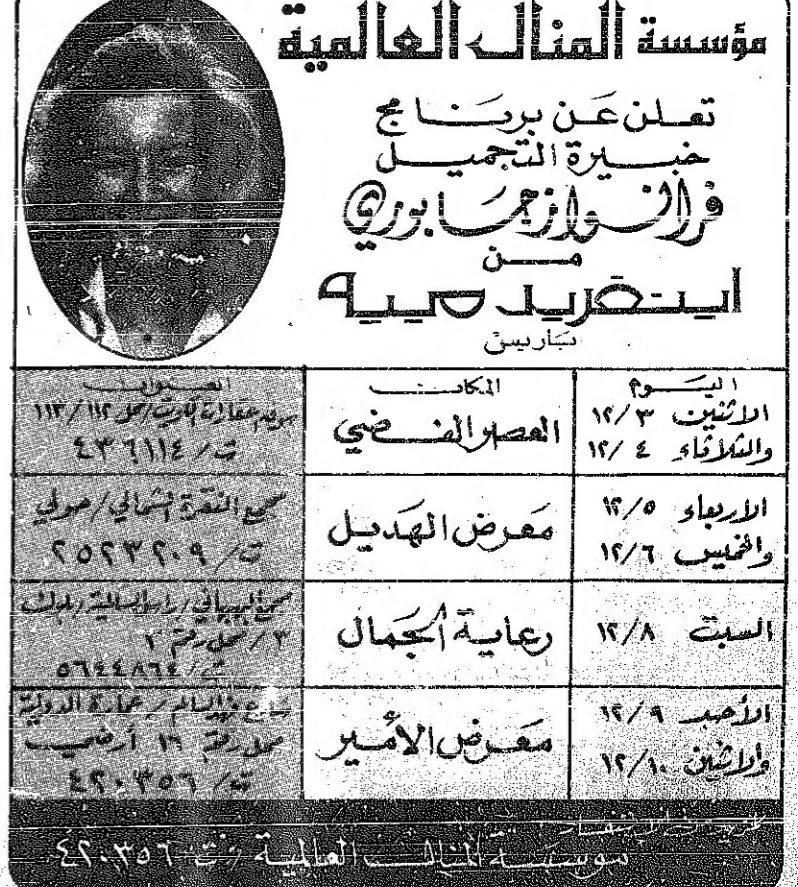 مؤسسة المنال العالمية
تعلن عن برنامج
خبيرة التجميل
فرانسواز جابوري
من
اينغريد مييه
باريس
اليوم
المكان
العنوان
الاثنين ١٢/٣
والثلاثاء ١٢/٤
العصر الفضي
عقارات الكويت / محل ١١٢ / ١١٣
ت / ٤٣٦١١٤
الاربعاء ١٢/٥
والخميس ١٢/٦
معرض الهديل
مجمع النقرة الشمالي / حولي
ت / ٢٥٢٣٢٠٩
السبت ١٢/٨
رعاية الجمال
مجمع / السالمية /
٣ / محل رقم ٢
ت / ٥٦٤٤٨٦٤
الأحد ١٢/٩
والاثنين ١٢/١٠
معرض الأمير
شارع فهد السالم / عمارة الدولية
محل رقم ١٦ أرضي
ت / ٤٢٠٣٥٦
لمزيد من الاستفسار
مؤسسة المنال العالمية ت ٤٢٠٣٥٦